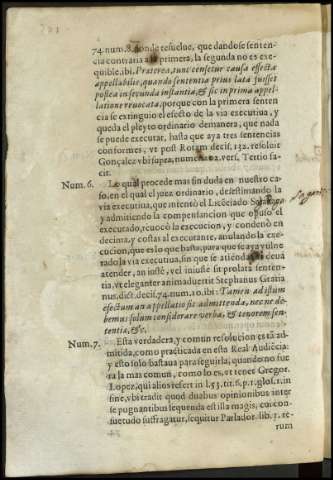 74. num. 8. donde resuelue, que dandose senten-
cia contraria a la primera, la segunda no es exe-
quible, ibi. Præterea, tunc censetur causa effectæ
appellabilis, quando sententia prius lata fuisset
postea in secunda instantia, & sic in prima appel-
latione reuocata, porque con la primera senten
cia se extinguio el efecto de la via executiua, y
queda el pleyto ordinario demanera, que nada
se puede executar, hasta que aya tres sentencias
conformes, vt post Rotam decis. 132. resoluit
Gonçalez vbi supra, numero 02. vers. Tertio fa-
cit.
Num. 6. Lo qual procede mas sin duda en nuestro ca-
so, en el qual el juez ordinario, desestimando la
via executiua, que intentò el Licẽciado
y admitiendo la compensacion que opuso el
executado, reuocò la execucion, y condenò en
decima, y costas al executante, anulando la exe-
cucion, que es lo que basta, para que se aya vulne
rado la via executiua, sin que se atienda, ni deua
atender, an iuste, vel iniuste sit prolata senten-
tia, vt eleganter animaduertit Stephanus Gratia
nus, dict. decis. 74. num. 10. ibi: Tamen ad istum
effectum an appellatio sit admittenda, nec ne de-
bemus solum considerare verba, & tenorem sen-
tentiæ, &c.
Num. 7. Esta verdadera, y comun resolucion es tã ad-
mitida, como practicada en esta Real Audiẽcia:
y esto solo bastaua para seguirla, quando no fue
ra la mas comun, como lo es, vt tenet Gregor.
Lopez, qui alios refert in l. 53. tit. 6. p. 1. glos. 1. in
fine, vbi tradit quod duabus opinionibus inter
se pugnantibus sequenda est illa magis, cui con-
suetudo suffragatur, sequitur Parlador. lib. 1. re-
rum